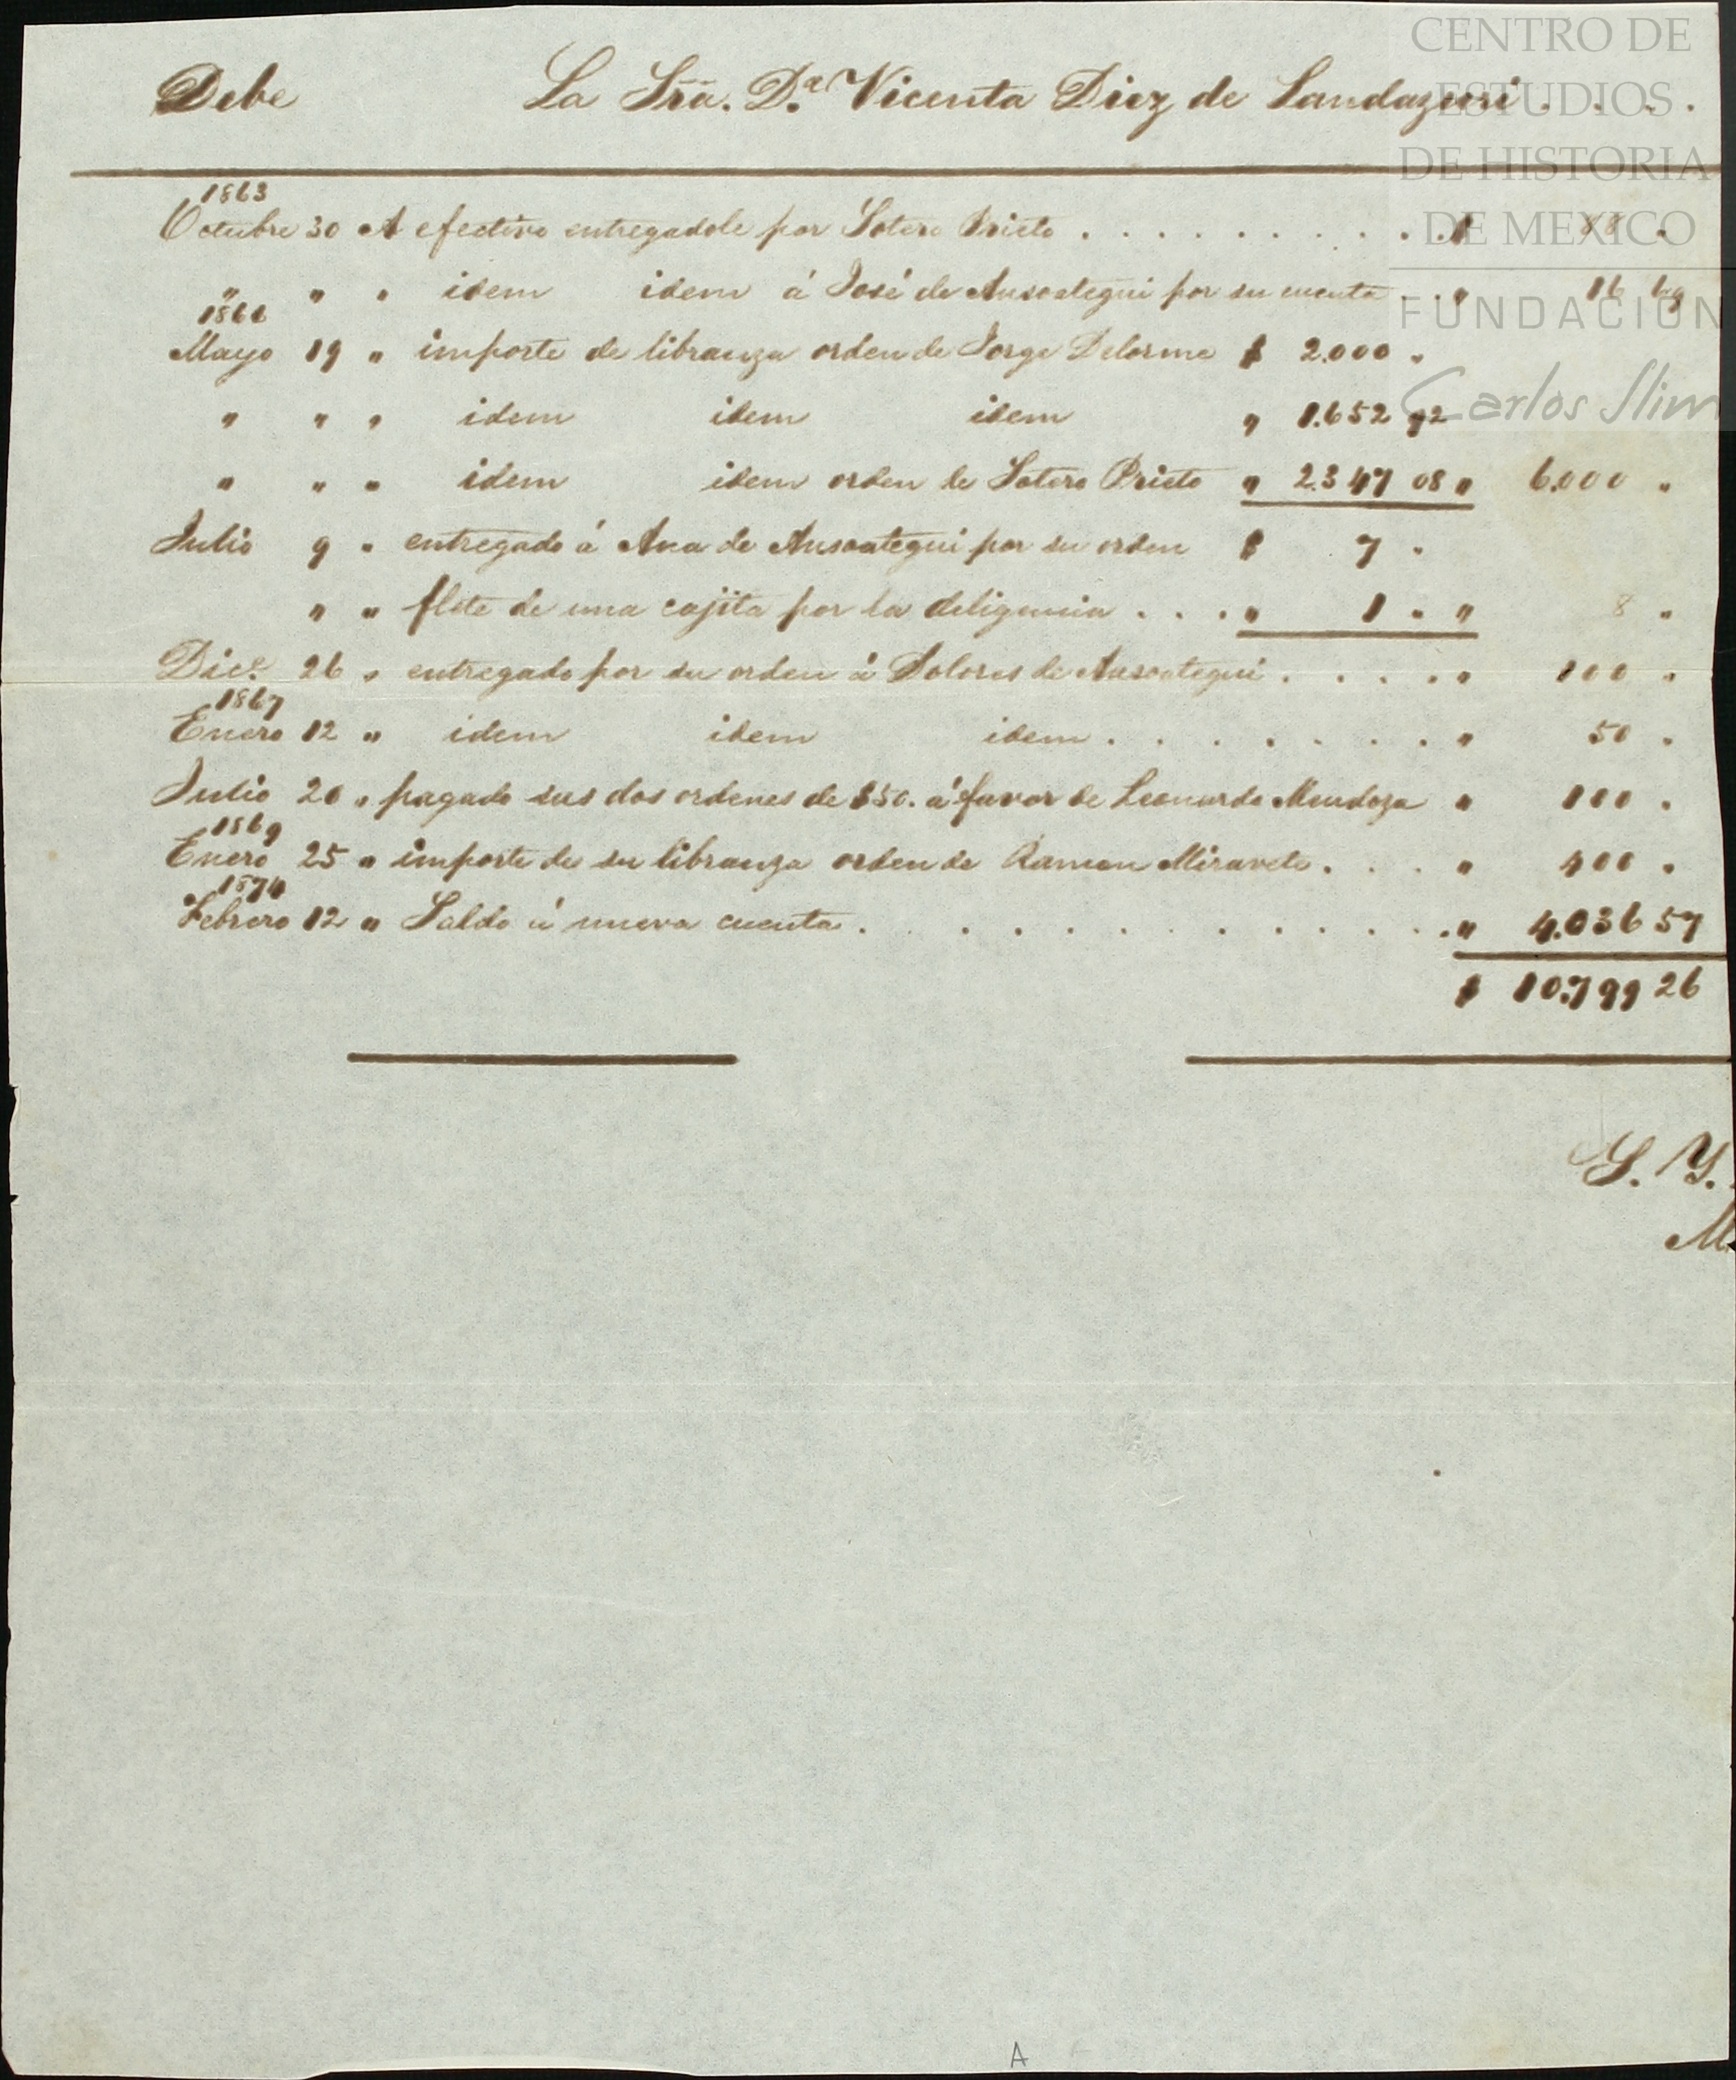 CENTRO DE
ESTUDIOS
DE HISTORIA
DE MEXICO
FUNDACIÓN
Carlos Slim
Debe La Sra. D.ª Vicenta Diez de Landazuri . . . .
1863
Octubre 30 A efectivo entregadole por Sotero Prieto . . . . . . . . . . $ 88 "
" " " idem idem á José de Ansoategui por su cuenta . " 16 69
1866
Mayo 19 " importe de libranza orden de Jorge Delorme $ 2.000 "
" " " idem idem idem " 1.652 92
" " " idem idem orden de Sotero Prieto " 2.347 08 " 6.000 "
Julio 9 " entregado á Ana de Ansoategui por su orden $ 7 "
" " flete de una cajita por la deligencia . . . " 1 " " 8 "
Dice. 26 " entregado por su orden á Dolores de Ansoategui . . . . . " 100 "
1867
Enero 12 " idem idem idem . . . . . . . . " 50 "
Julio 20 " pagado sus dos ordenes de $50. á favor de Leonardo Mendoza " 100 "
1869
Enero 25 " importe de su libranza orden de Ramon Miravete . . . " 400 "
1874
Febrero 12 " Saldo á nueva cuenta . . . . . . . . . . . . . " 4.036 57
$ 10.799 26
S. Y.
M
A